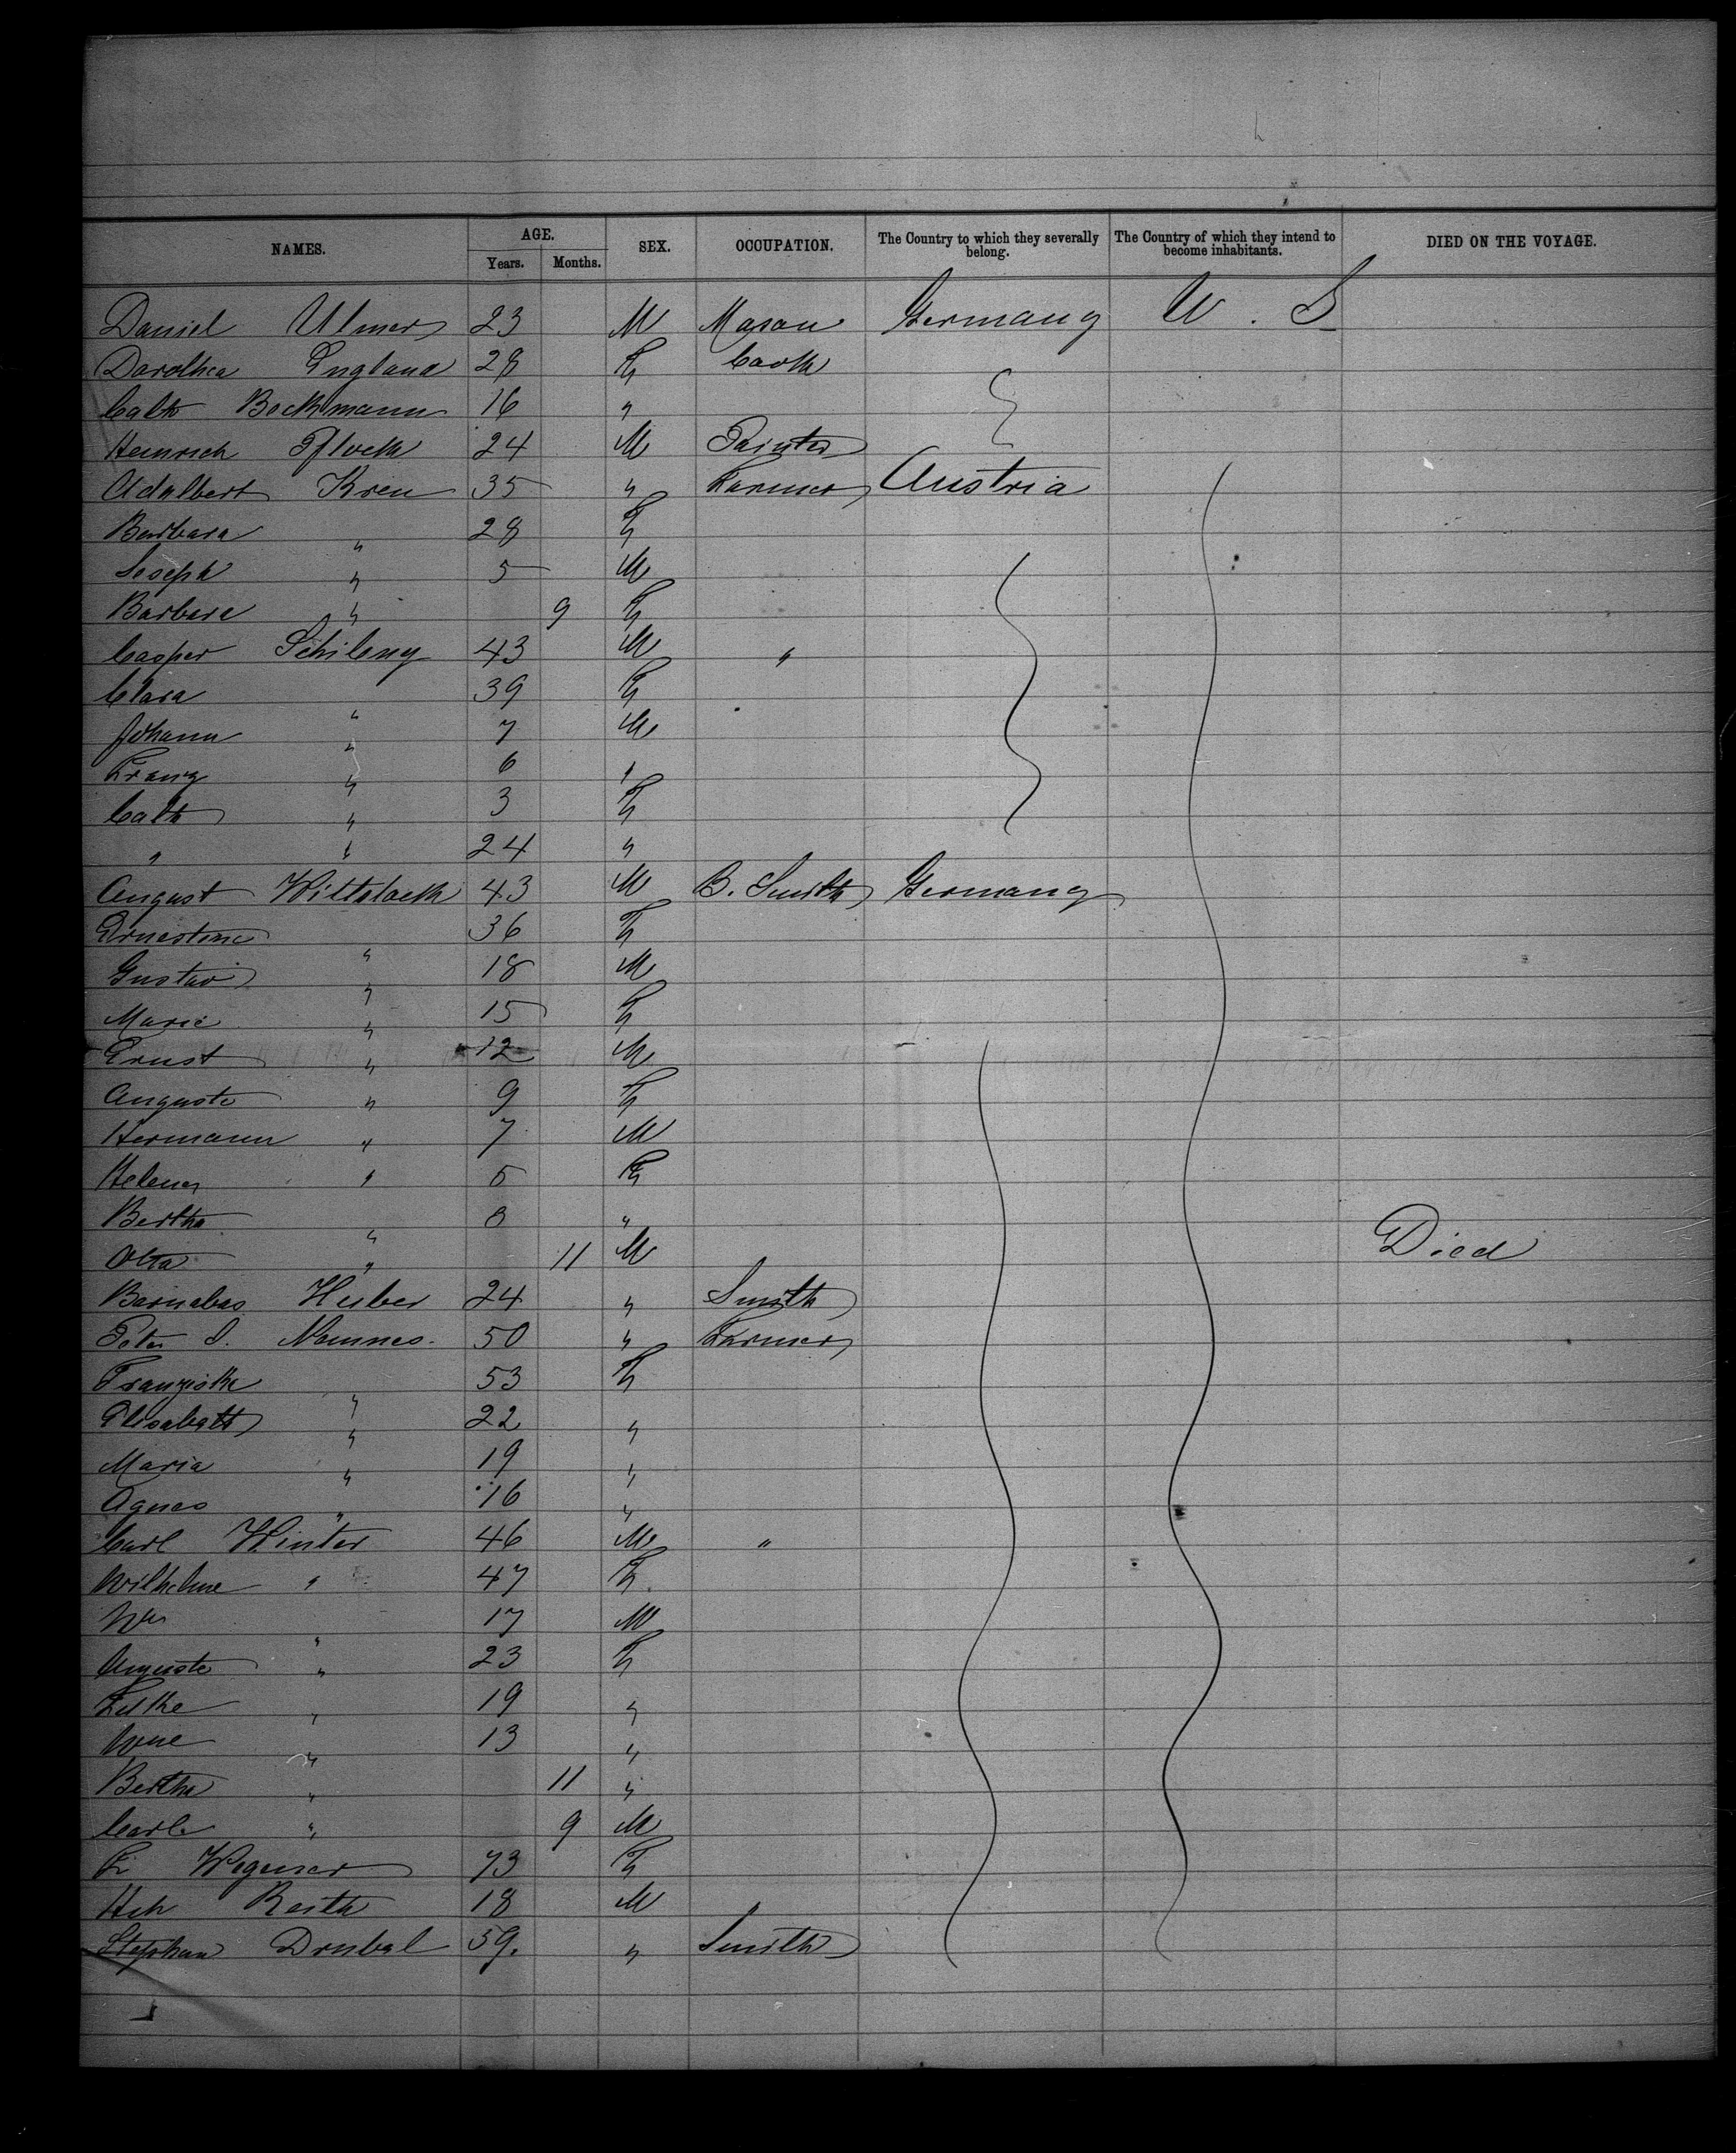 NAMES. AGE. SEX. OCCUPATION. The Country to which they severally belong. The Country of which they intend to become inhabitants. DIED ON THE VOYAGE.
Years. Months.
Daniel Ulmer 23 M Mason Germany U. S
Dorothea England 28 F Cook
Cath Bockmann 16 "
Heinrich Pflock 24 M Painter
Adalbert Kren 35 " Farmer Austria
Barbara " 28 F
Joseph " 5 M
Barbara " 9 F
Casper Schileny 43 M "
Clara " 39 F
Johann " 7 M
Franz " 6 "
Cath " 3 F
" " 24 "
August Wittstock 43 M B. Smith Germany
Ernestine " 36 F
Gustav " 18 M
Marie " 15 F
Ernst " 12 M
Auguste " 9 F
Hermann " 7 M
Helene " 5 F
Bertha " 3 "
Otto " 11 M Died
Barnabas Huber 24 " Smith
Peter J. 50 " Farmer
Franziska " 53 F
Elisabeth " 22 "
Maria " 19 "
Agnes " 16 "
Carl Winter 46 M "
Wilhelme " 47 F
Wm " 17 M
Auguste " 23 F
" 19 "
Wme " 13 "
Bertha " 11 "
Carl " 9 M
F. Wegener 73 F
Hch Reith 18 M
Stephan Drubal 59. " Smith